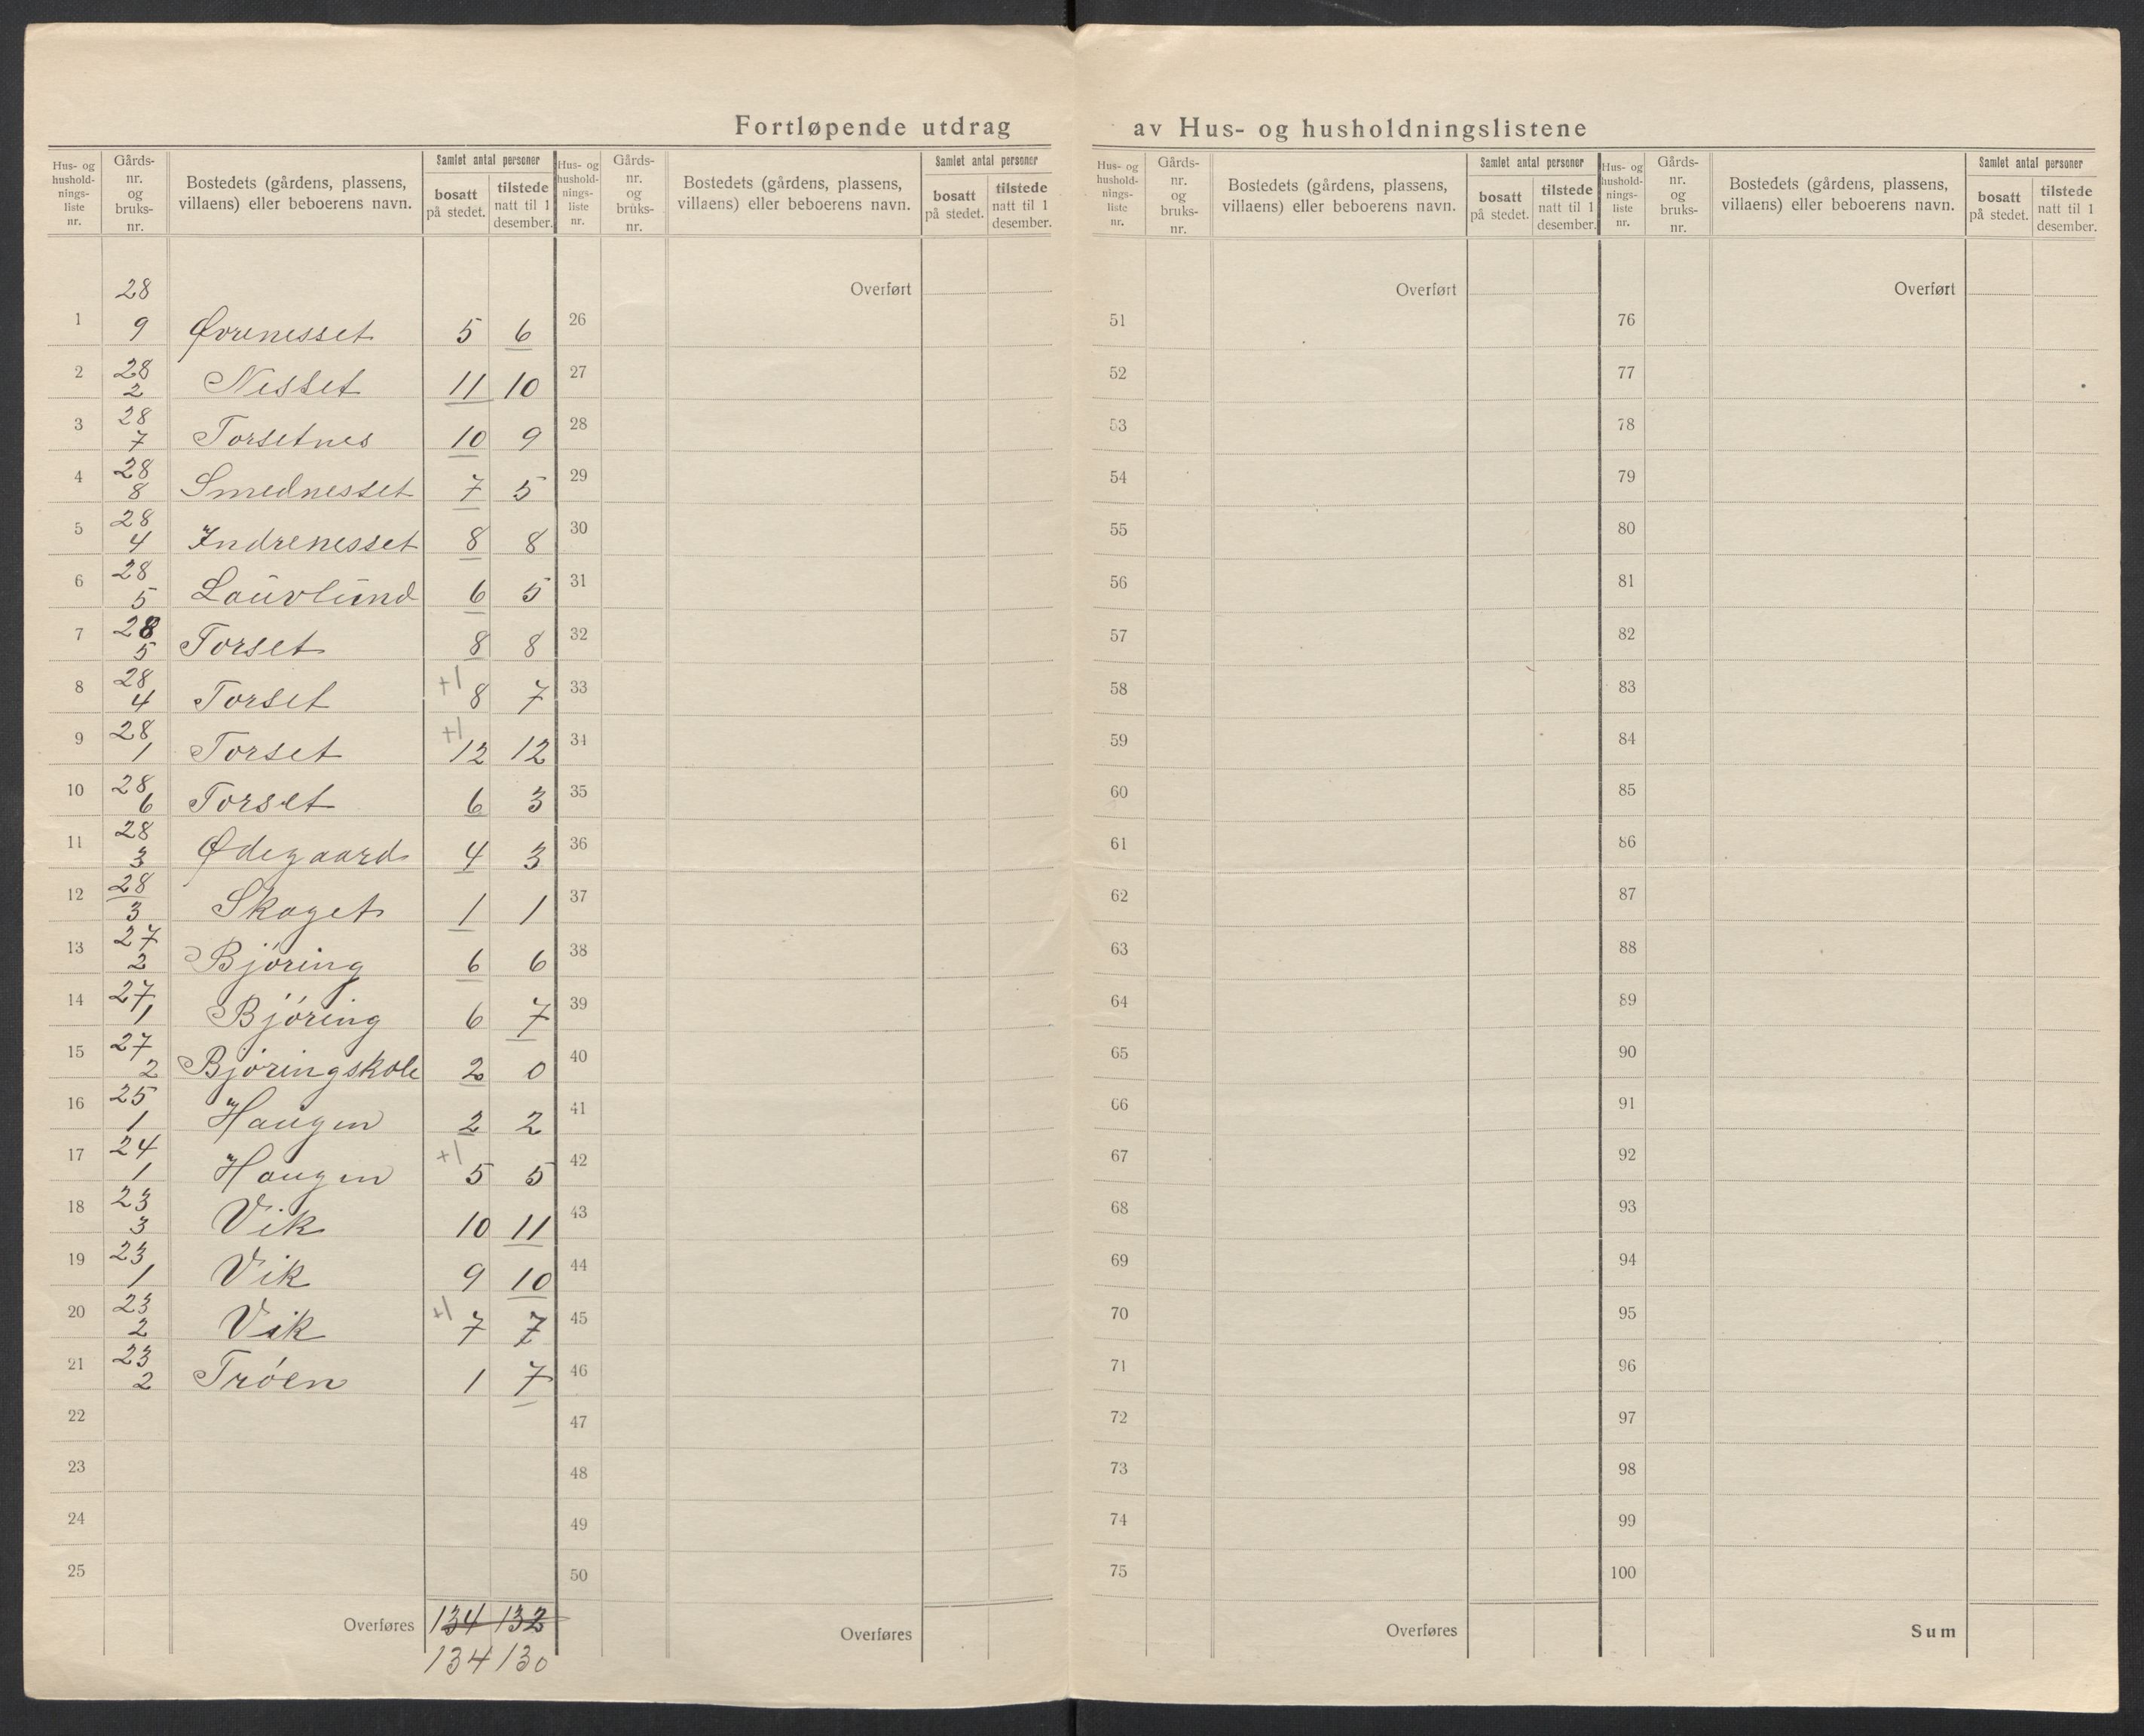 Fortløpende utdrag av Hus- og husholdningslistene
Hus- og husholdnings-liste nr. Gårds-nr. og bruks-nr. Bostedets (gårdens, plassens, villaens) eller beboerens navn. Samlet antal personer bosatt på stedet. tilstede natt til 1 desember.
1 28 9 Øvrenesset 5 6
2 28 2 Nesset 11 10
3 28 7 Torsetnes 10 9
4 28 8 Smednesset 7 5
5 28 4 Indrenesset 8 8
6 28 5 Lauvlund 6 5
7 28 5 Torset 8 8
8 28 4 Torset +1 8 7
9 28 1 Torset +1 12 12
10 28 6 Torset 6 3
11 28 3 Ødegaard 4 3
12 28 3 Skaget 1 1
13 27 2 Björing 6 6
14 27 1 Björing 6 7
15 27 2 Björingskole 2 0
16 25 1 Haugen 2 2
17 24 1 Haugen +1 5 5
18 23 3 Vik 10 11
19 23 1 Vik 9 10
20 23 2 Vik +1 7 7
21 23 2 Tróen 1 7
22
23
24
25
Overføres 134 132
134 130
Hus- og husholdnings-liste nr. Gårds-nr. og bruks-nr. Bostedets (gårdens, plassens, villaens) eller beboerens navn. Samlet antal personer bosatt på stedet. tilstede natt til 1 desember.
Overført
26
27
28
29
30
31
32
33
34
35
36
37
38
39
40
41
42
43
44
45
46
47
48
49
50
Overføres
Hus- og husholdnings-liste nr. Gårds-nr. og bruks-nr. Bostedets (gårdens, plassens, villaens) eller beboerens navn. Samlet antal personer bosatt på stedet. tilstede natt til 1 desember.
Overført
51
52
53
54
55
56
57
58
59
60
61
62
63
64
65
66
67
68
69
70
71
72
73
74
75
Overføres
Hus- og husholdnings-liste nr. Gårds-nr. og bruks-nr. Bostedets (gårdens, plassens, villaens) eller beboerens navn. Samlet antal personer bosatt på stedet. tilstede natt til 1 desember.
Overført
76
77
78
79
80
81
82
83
84
85
86
87
88
89
90
91
92
93
94
95
96
97
98
99
100
Sum